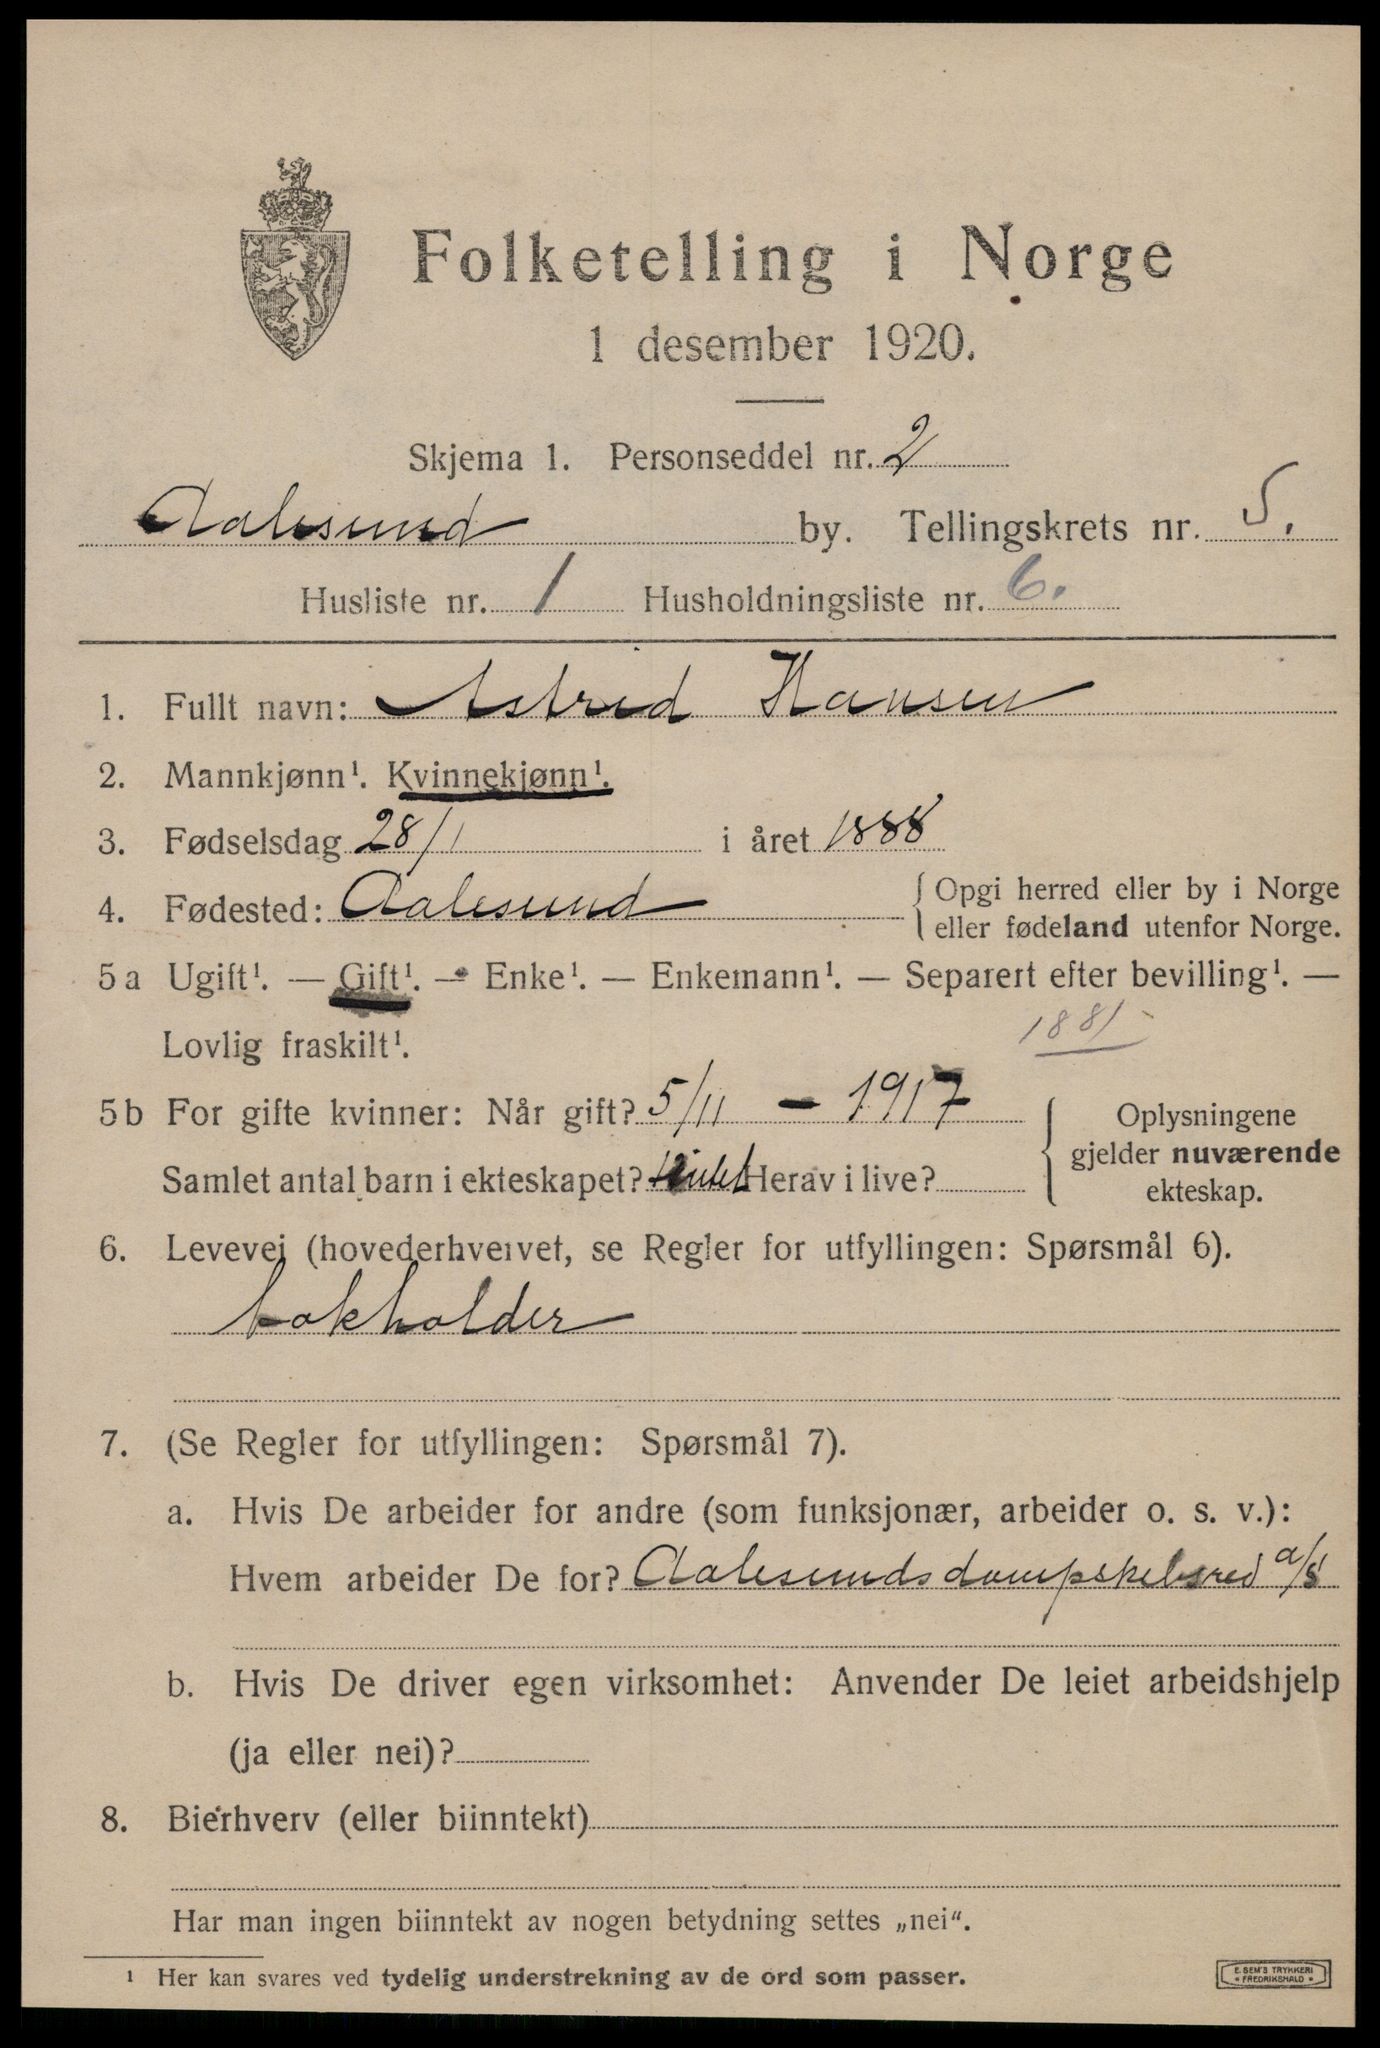 Folketelling i Norge
1 desember 1920.
Skjema 1. Personseddel nr. 2
Aalesund by. Tellingskrets nr. 5.
Husliste nr. 1 Husholdningsliste nr. 6.
1. Fullt navn: Astrid Hansen
2. Mannkjønn¹. Kvinnekjønn¹.
3. Fødselsdag 28/1 i året 1888
4. Fødested: Aalesund { Opgi herred eller by i Norge
eller fødeland utenfor Norge.
5a Ugift¹. — Gift¹. — Enke¹. — Enkemann¹. — Separert efter bevilling¹. —
Lovlig fraskilt¹. 1881
5b For gifte kvinner: Når gift? 5/11 - 1917
Samlet antal barn i ekteskapet? Intet Herav i live?
{ Oplysningene
gjelder nuværende
ekteskap.
6. Levevei (hovederhvervet, se Regler for utfyllingen: Spørsmål 6).
bokholder
7. (Se Regler for utfyllingen: Spørsmål 7).
a. Hvis De arbeider for andre (som funksjonær, arbeider o. s. v.):
Hvem arbeider De for? Aalesunds dampskebsred a/s
b. Hvis De driver egen virksomhet: Anvender De leiet arbeidshjelp
(ja eller nei)?
8. Bierhverv (eller biinntekt)
Har man ingen biinntekt av nogen betydning settes „nei“.
¹ Her kan svares ved tydelig understrekning av de ord som passer.
E. SEM'S TRYKKERI
• FREDRIKSHALD •